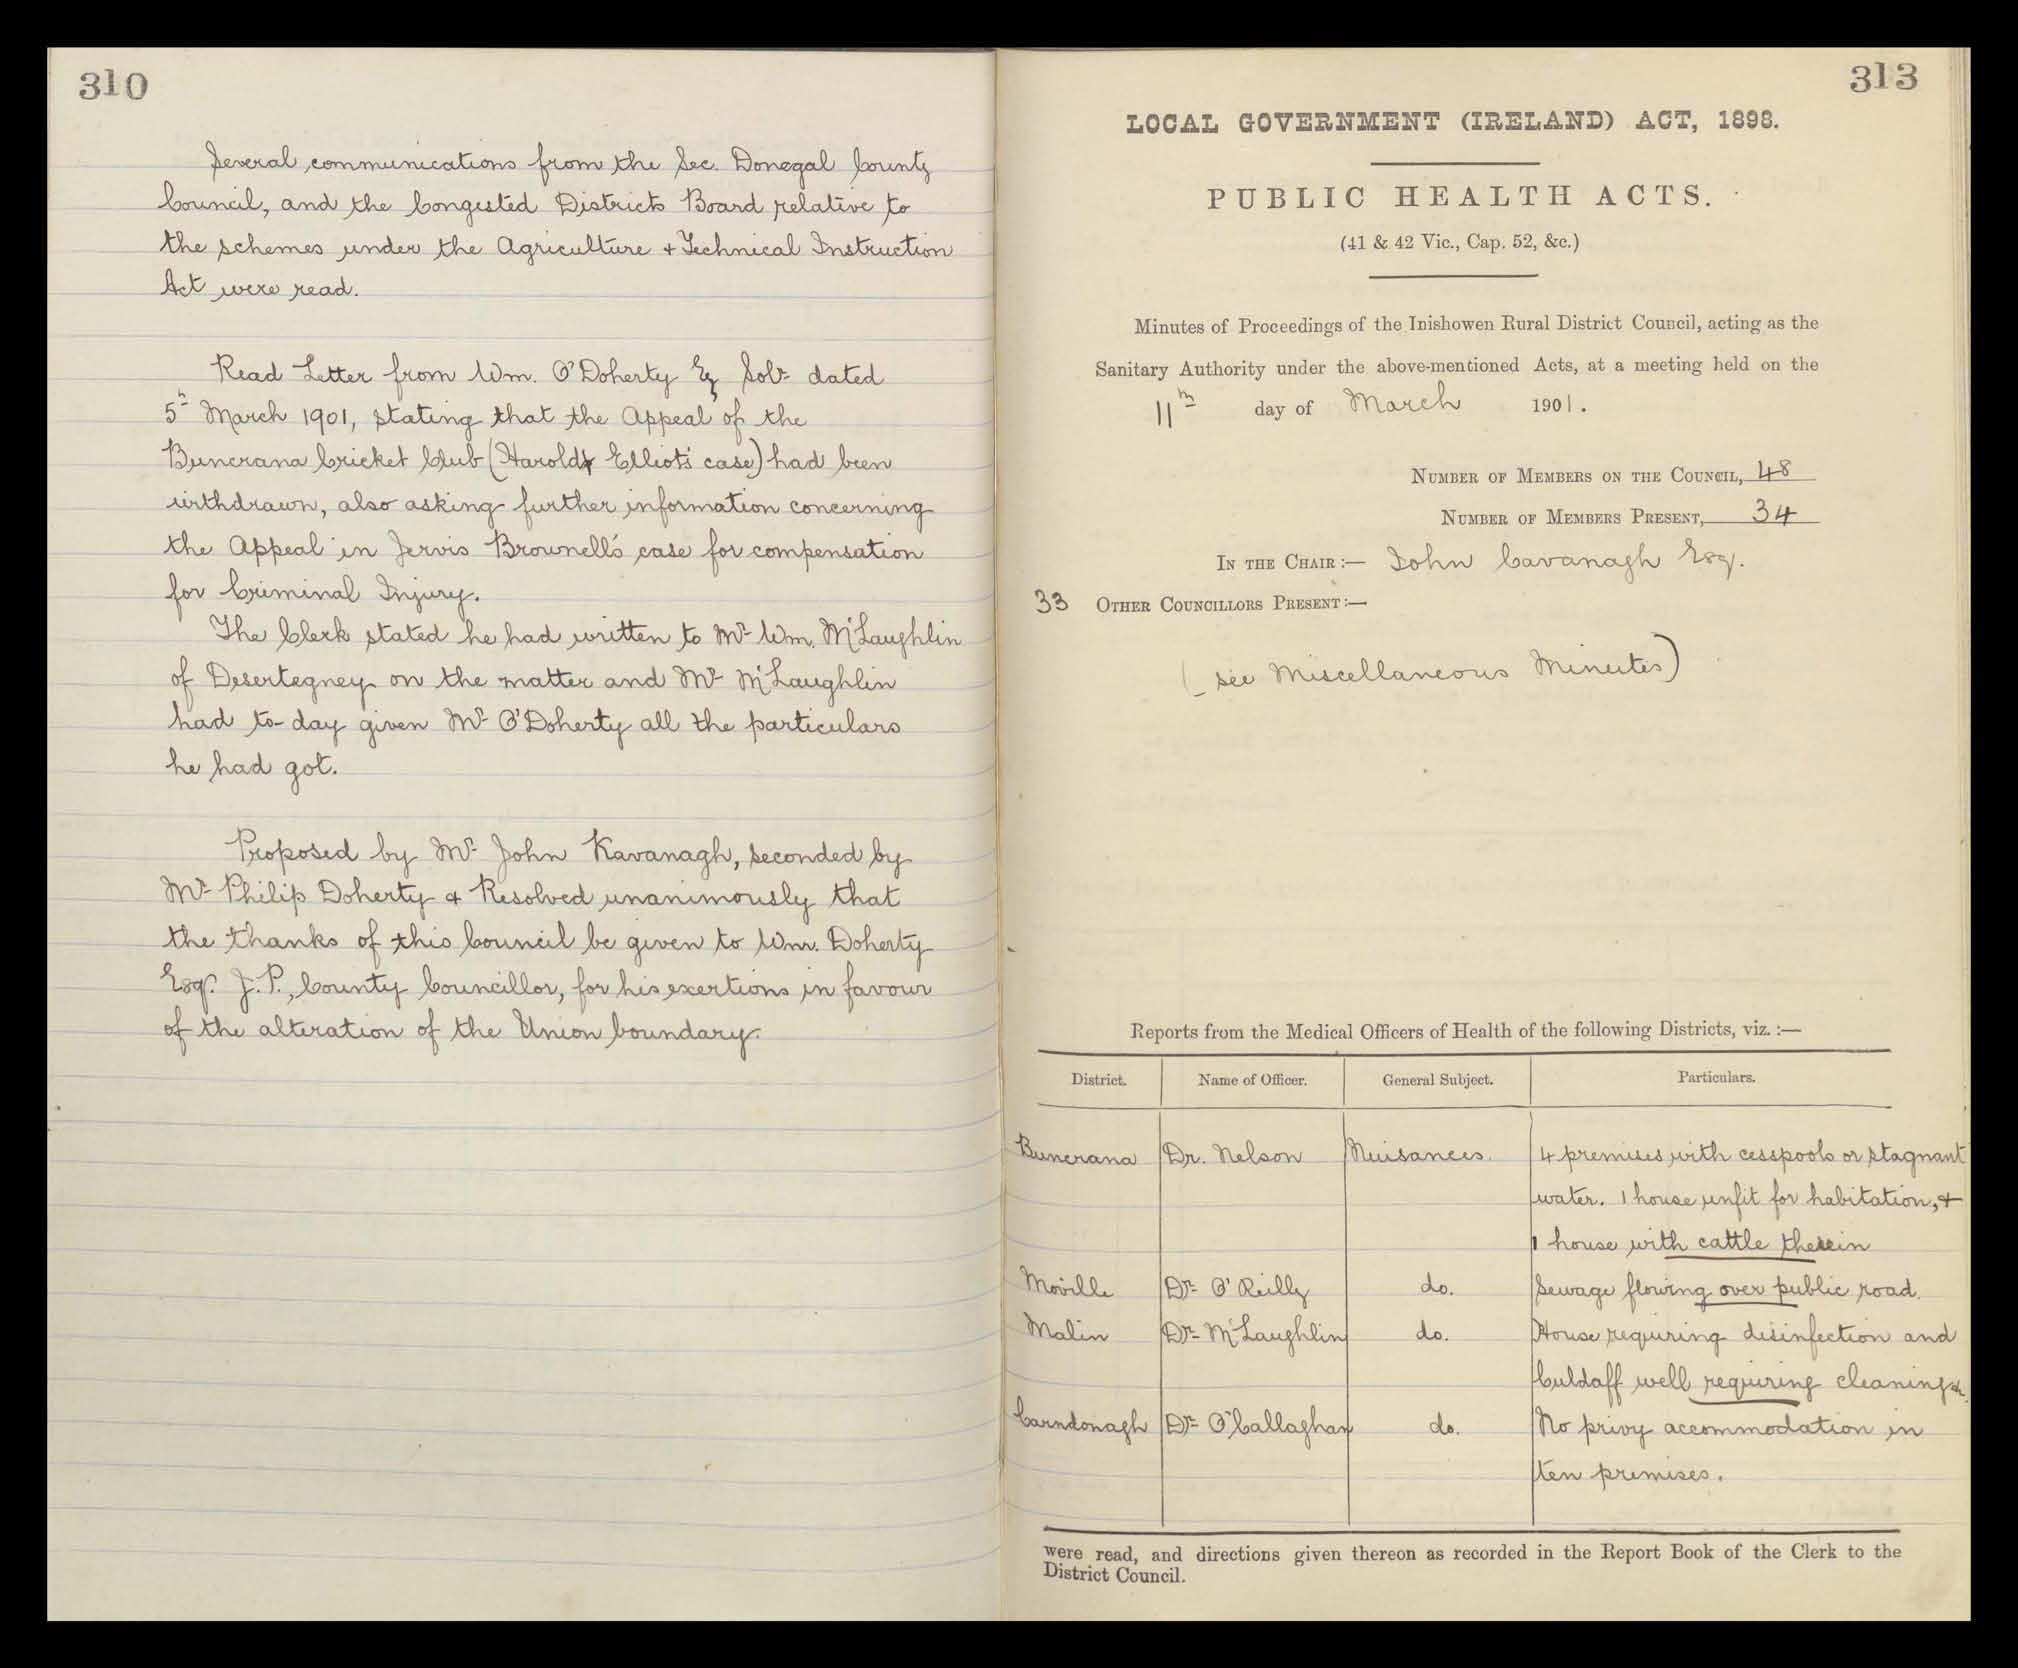 310
Several communications from the Sec. Donegal County
Council, and the Congested Districts Board relative to
the schemes under the Agriculture & Technical Instruction
Act were read.
Read Letter from Wm. O'Doherty Esq Solr dated
5th March 1901, stating that the Appeal of the
Buncrana Cricket Club (Harold Elliot's case) had been
withdrawn, also asking further information concerning
the Appeal in Jervis Brownell's case for compensation
for Criminal Injury.
The Clerk stated he had written to Mr Wm. McLaughlin
of Desertegney on the matter and Mr McLaughlin
had to-day given Mr O'Doherty all the particulars
he had got.
Proposed by Mr John Kavanagh, seconded by
Mr Philip Doherty & Resolved unanimously that
the thanks of this Council be given to Wm. Doherty
Esqr. J.P., County Councillor, for his exertions in favour
of the alteration of the Union boundary.
313
LOCAL GOVERNMENT (IRELAND) ACT, 1898.
PUBLIC HEALTH ACTS.
(41 & 42 Vic., Cap. 52, &c.)
Minutes of Proceedings of the Inishowen Rural District Council, acting as the
Sanitary Authority under the above-mentioned Acts, at a meeting held on the
11th day of March 1901.
NUMBER OF MEMBERS ON THE COUNCIL, 48
NUMBER OF MEMBERS PRESENT, 34
IN THE CHAIR:— John Cavanagh Esq.
33 OTHER COUNCILLORS PRESENT:—
(see Miscellaneous Minutes)
Reports from the Medical Officers of Health of the following Districts, viz. :—
District. Name of Officer. General Subject. Particulars.
Buncrana Dr. Nelson Nuisances. 4 premises with cesspools or stagnant
water. 1 house unfit for habitation, &
1 house with cattle therein
Moville Dr O'Reilly do. Sewage flowing over public road.
Malin Dr McLaughlin do. House requiring disinfection and
Culdaff well requiring cleaning &c.
Carndonagh Dr O'Callaghan do. No privy accommodation in
ten premises.
were read, and directions given thereon as recorded in the Report Book of the Clerk to the
District Council.